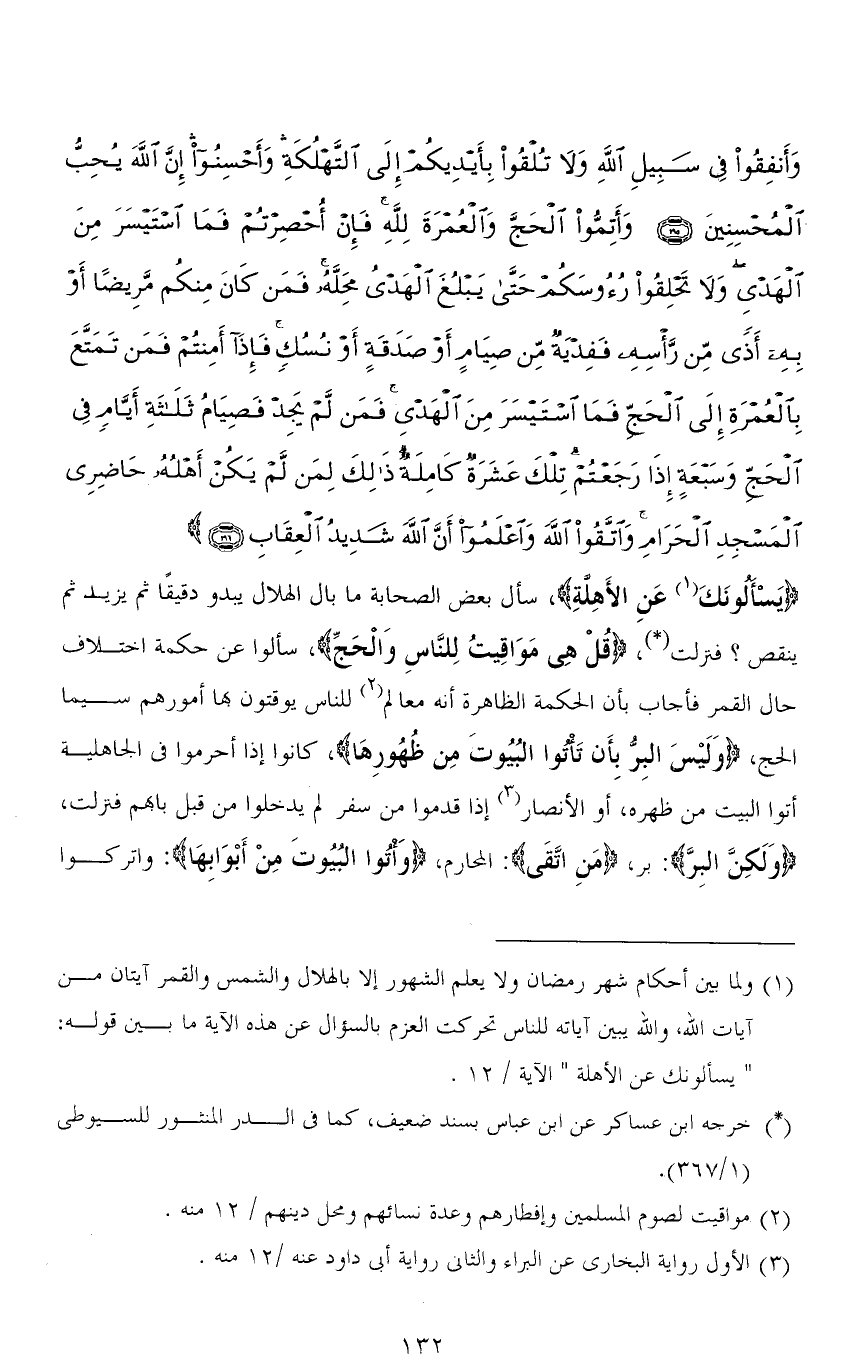 وَأَنفِقُوا۟ فِى سَبِيلِ ٱللَّهِ وَلَا تُلْقُوا۟ بِأَيْدِيكُمْ إِلَى ٱلتَّهْلُكَةِ ۛ وَأَحْسِنُوٓا۟ ۛ إِنَّ ٱللَّهَ يُحِبُّ
ٱلْمُحْسِنِينَ ﴿١٩٥﴾ وَأَتِمُّوا۟ ٱلْحَجَّ وَٱلْعُمْرَةَ لِلَّهِ ۚ فَإِنْ أُحْصِرْتُمْ فَمَا ٱسْتَيْسَرَ مِنَ
ٱلْهَدْىِ ۖ وَلَا تَحْلِقُوا۟ رُءُوسَكُمْ حَتَّىٰ يَبْلُغَ ٱلْهَدْىُ مَحِلَّهُۥ ۚ فَمَن كَانَ مِنكُم مَّرِيضًا أَوْ
بِهِۦٓ أَذًى مِّن رَّأْسِهِۦ فَفِدْيَةٌ مِّن صِيَامٍ أَوْ صَدَقَةٍ أَوْ نُسُكٍ ۚ فَإِذَآ أَمِنتُمْ فَمَن تَمَتَّعَ
بِٱلْعُمْرَةِ إِلَى ٱلْحَجِّ فَمَا ٱسْتَيْسَرَ مِنَ ٱلْهَدْىِ ۚ فَمَن لَّمْ يَجِدْ فَصِيَامُ ثَلَـٰثَةِ أَيَّامٍ فِى
ٱلْحَجِّ وَسَبْعَةٍ إِذَا رَجَعْتُمْ ۗ تِلْكَ عَشَرَةٌ كَامِلَةٌ ۗ ذَٰلِكَ لِمَن لَّمْ يَكُنْ أَهْلُهُۥ حَاضِرِى
ٱلْمَسْجِدِ ٱلْحَرَامِ ۚ وَٱتَّقُوا۟ ٱللَّهَ وَٱعْلَمُوٓا۟ أَنَّ ٱللَّهَ شَدِيدُ ٱلْعِقَابِ ﴿١٩٦﴾ ﴾
﴿يَسْأَلُونَكَ(١) عَنِ الأَهِلَّةِ﴾، سأل بعض الصحابة ما بال الهلال يبدو دقيقًا ثم يزيد ثم
ينقص ؟ فنزلت(*)، ﴿قُلْ هِى مَوَاقِيتُ لِلنَّاسِ وَالْحَجِّ﴾، سألوا عن حكمة اختلاف
حال القمر فأجاب بأن الحكمة الظاهرة أنه معالم(٢) للناس يوقتون بها أمورهم سيما
الحج، ﴿وَلَيْسَ البِرُّ بِأَن تَأْتُوا البُيُوتَ مِن ظُهُورِهَا﴾، كانوا إذا أحرموا فى الجاهلية
أتوا البيت من ظهره، أو الأنصار(٣) إذا قدموا من سفر لم يدخلوا من قبل بابهم فنزلت،
﴿وَلَكِنَّ البِرَّ﴾: بر، ﴿مَنِ اتَّقَى﴾: المحارم، ﴿وَأْتُوا البُيُوتَ مِنْ أَبْوَابِهَا﴾: واتركوا
(١) ولما بين أحكام شهر رمضان ولا يعلم الشهور إلا بالهلال والشمس والقمر آيتان من
آيات الله، والله يبين آياته للناس تحركت العزم بالسؤال عن هذه الآية ما بين قوله:
" يسألونك عن الأهلة " الآية / ١٢ .
(*) خرجه ابن عساكر عن ابن عباس بسند ضعيف، كما فى الدر المنثور للسيوطى
(٣٦٧/١).
(٢) مواقيت لصوم المسلمين وإفطارهم وعدة نسائهم ومحل دينهم / ١٢ منه .
(٣) الأول رواية البخارى عن البراء والثانى رواية أبى داود عنه /١٢ منه .
١٣٢